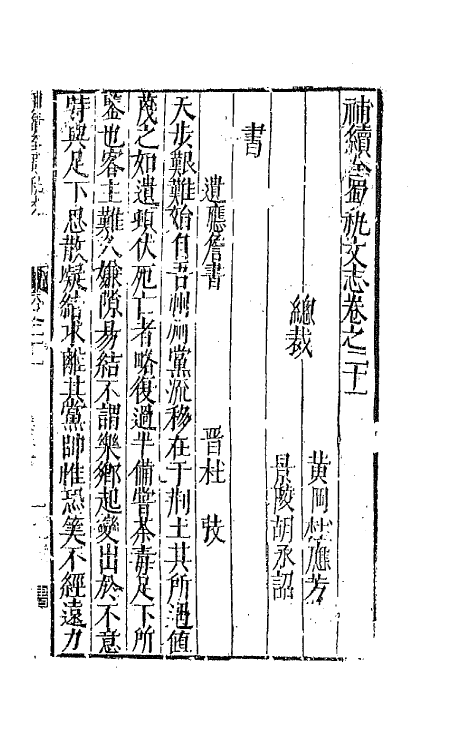 補續全蜀秇文志卷之二十一
總裁
黃岡杜應芳
景陵胡承詔
書
遺應詹書
晋杜弢
天步艱難始自吾州州黨流移在于荆土其所遇値
蔑之如遺頓伏死亡者略復過半備嘗荼毒足下所
鑒也客主難久嫌隙易結不謂樂鄉起變出於不意
時與足下思散疑結求離其黨帥惟恐筭不經遠力